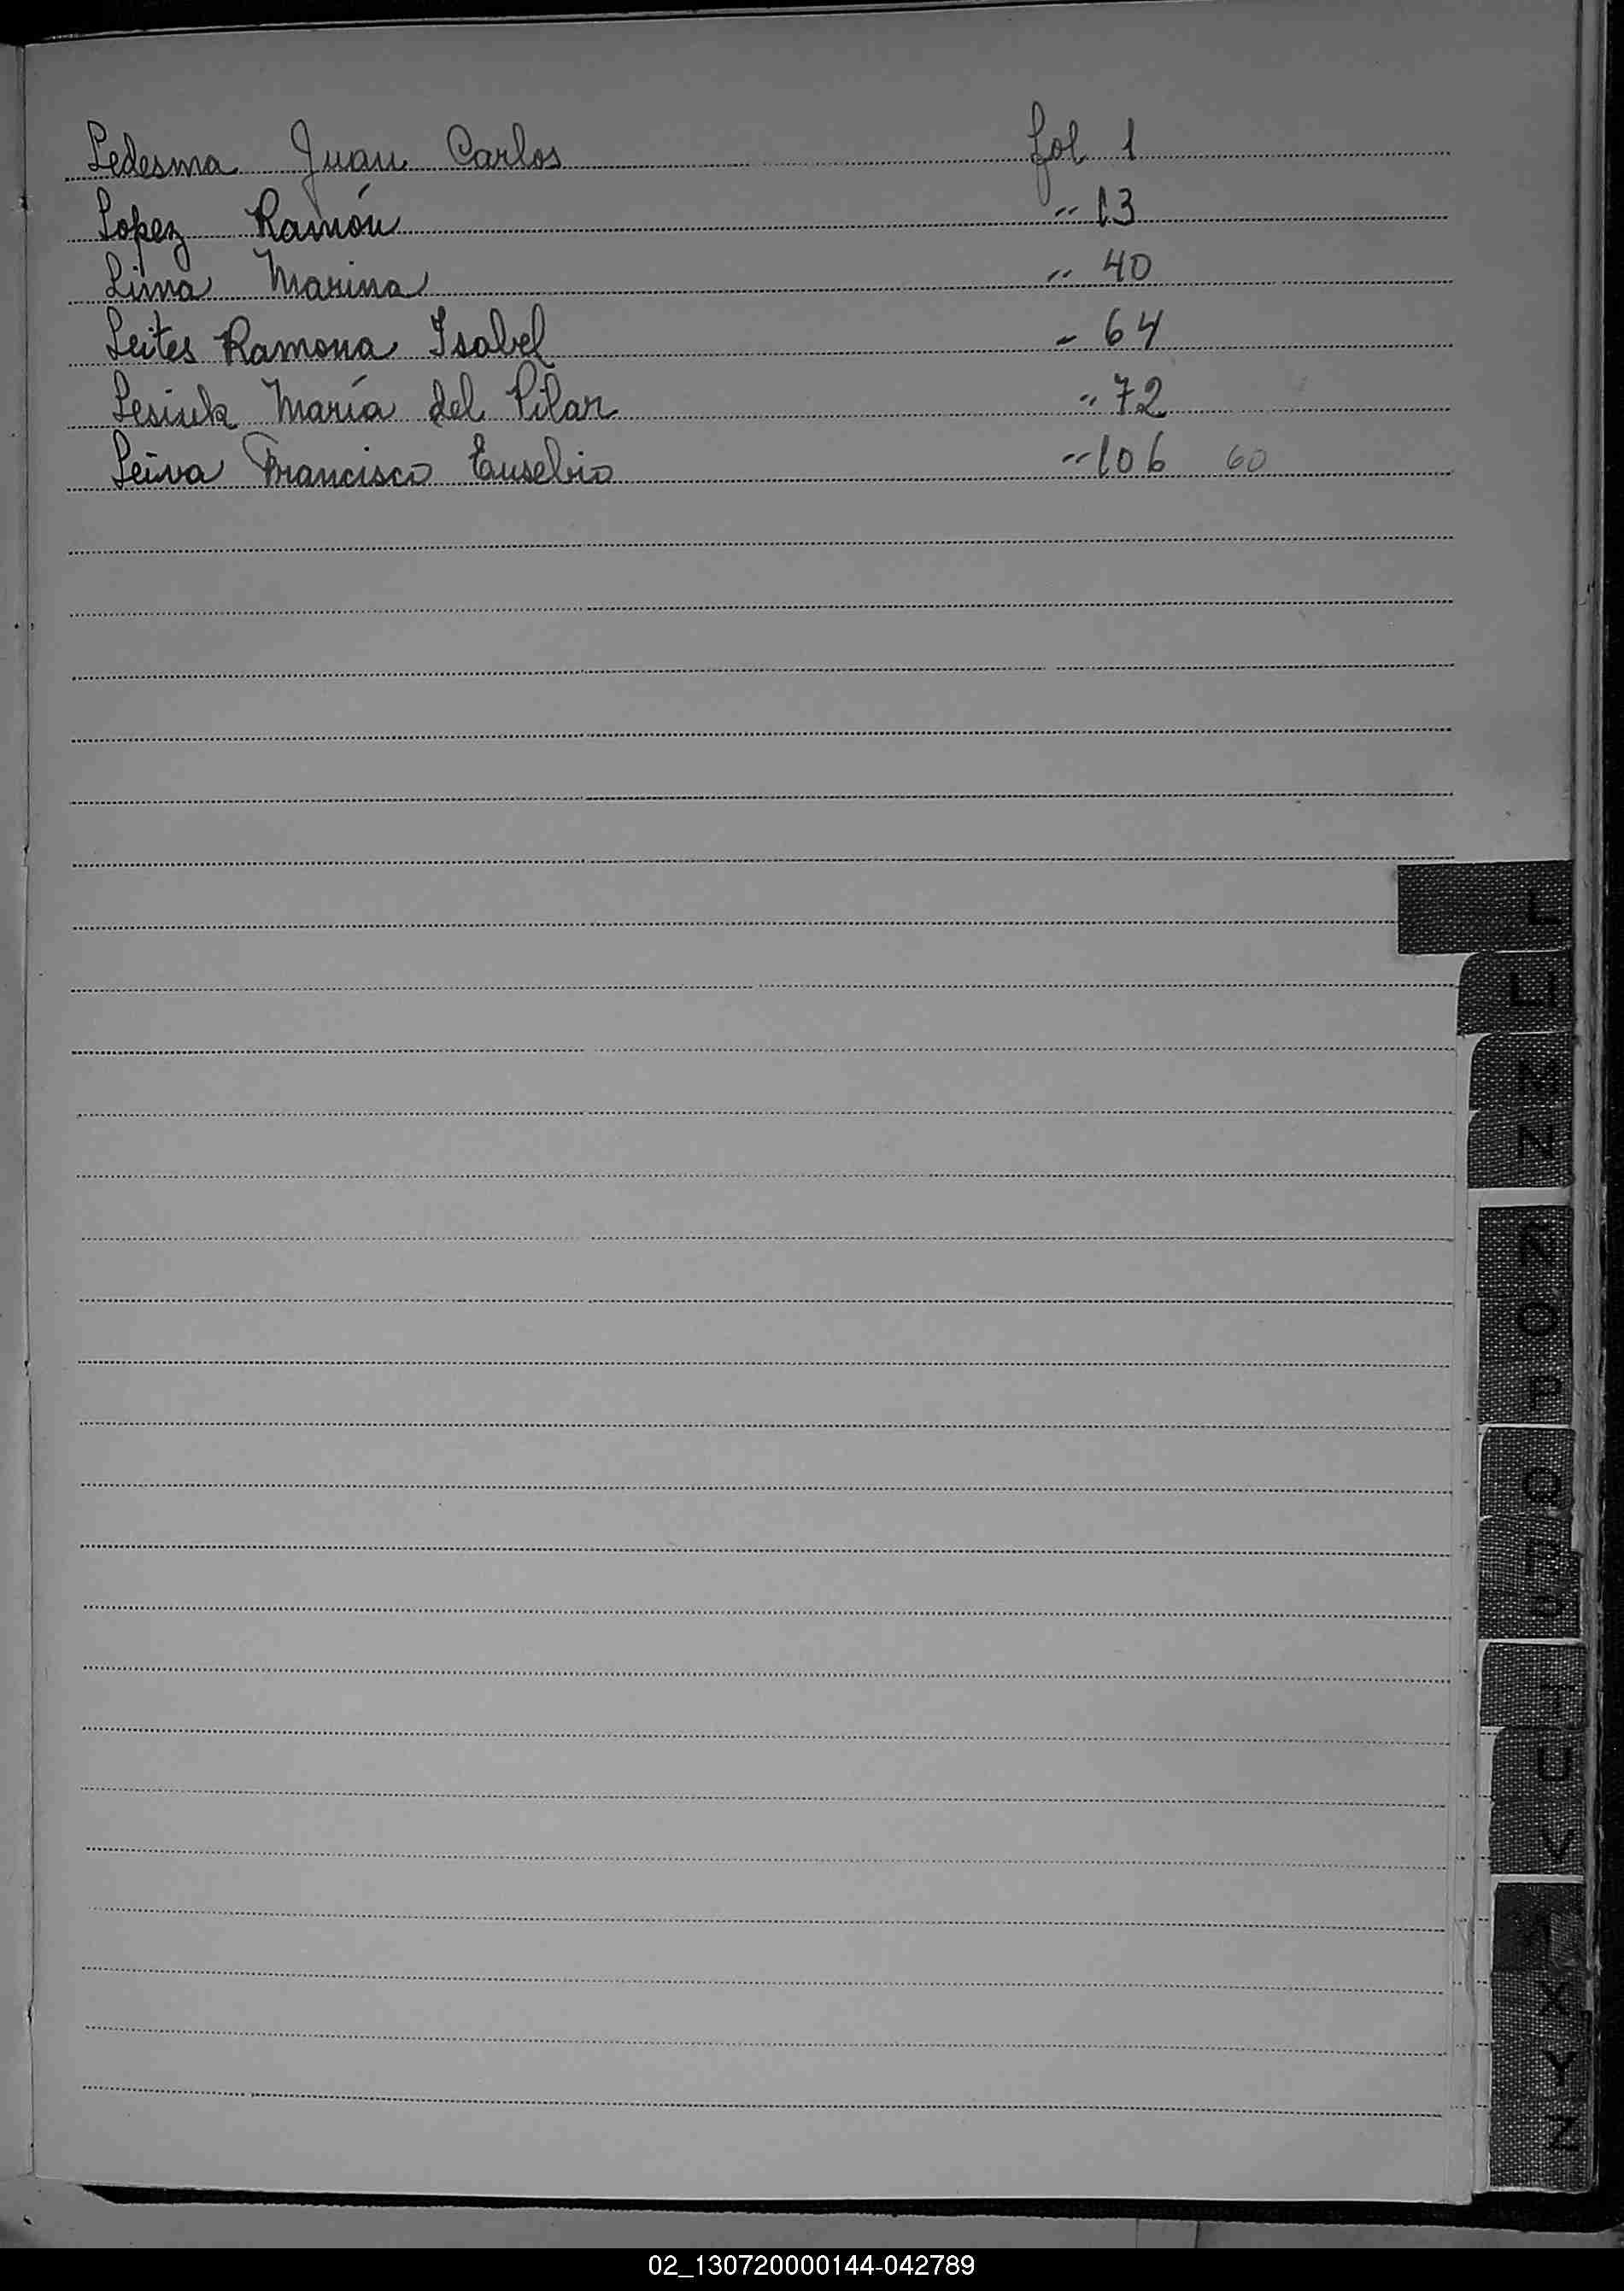 Ledesma Juan Carlos fol 1
Lopez Ramón " 13
Lima Marina " 40
Leites Ramona Isabel " 64
Lesiuk María del Pilar " 72
Leiva Francisco Eusebio " 106 60
L
Ll
M
N
Ñ
O
P
Q
R
S
T
U
V
X
Y
Z
02_130720000144-042789